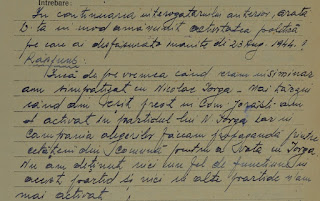 Întrebare:
In continuarea interogatorului anterior, arată
în mod amănunțit activitatea politică
pe care ai desfășurat-o înainte de 23 Aug. 1944. ?
Răspuns:
Încă de pe vremea când eram în seminar
am simpatizat cu Nicolae Iorga - Mai târziu
când am fost preot în Com.
activat în partidul lui N. Iorga iar in
campania alegerilor făceam propagandă printre
cetățenii din Comună pentru a vota cu Iorga.
Nu am deținut nici un fel de funcțiune în
acest partid și nici în alte partide n'am
mai activat